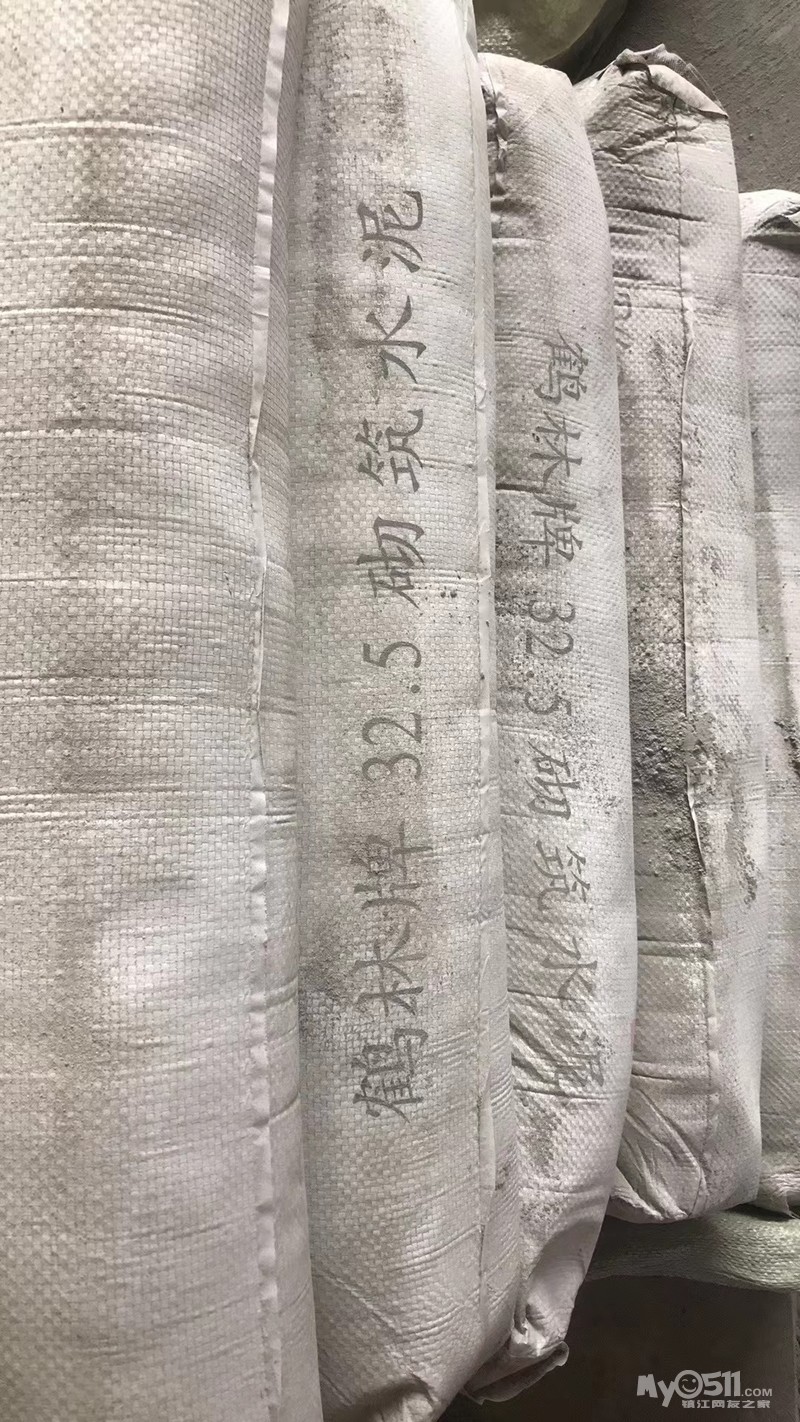 鹤林牌 32.5 砌筑水泥
鹤林牌 32.5 砌筑水泥
My0511.COM
镇江网友之家